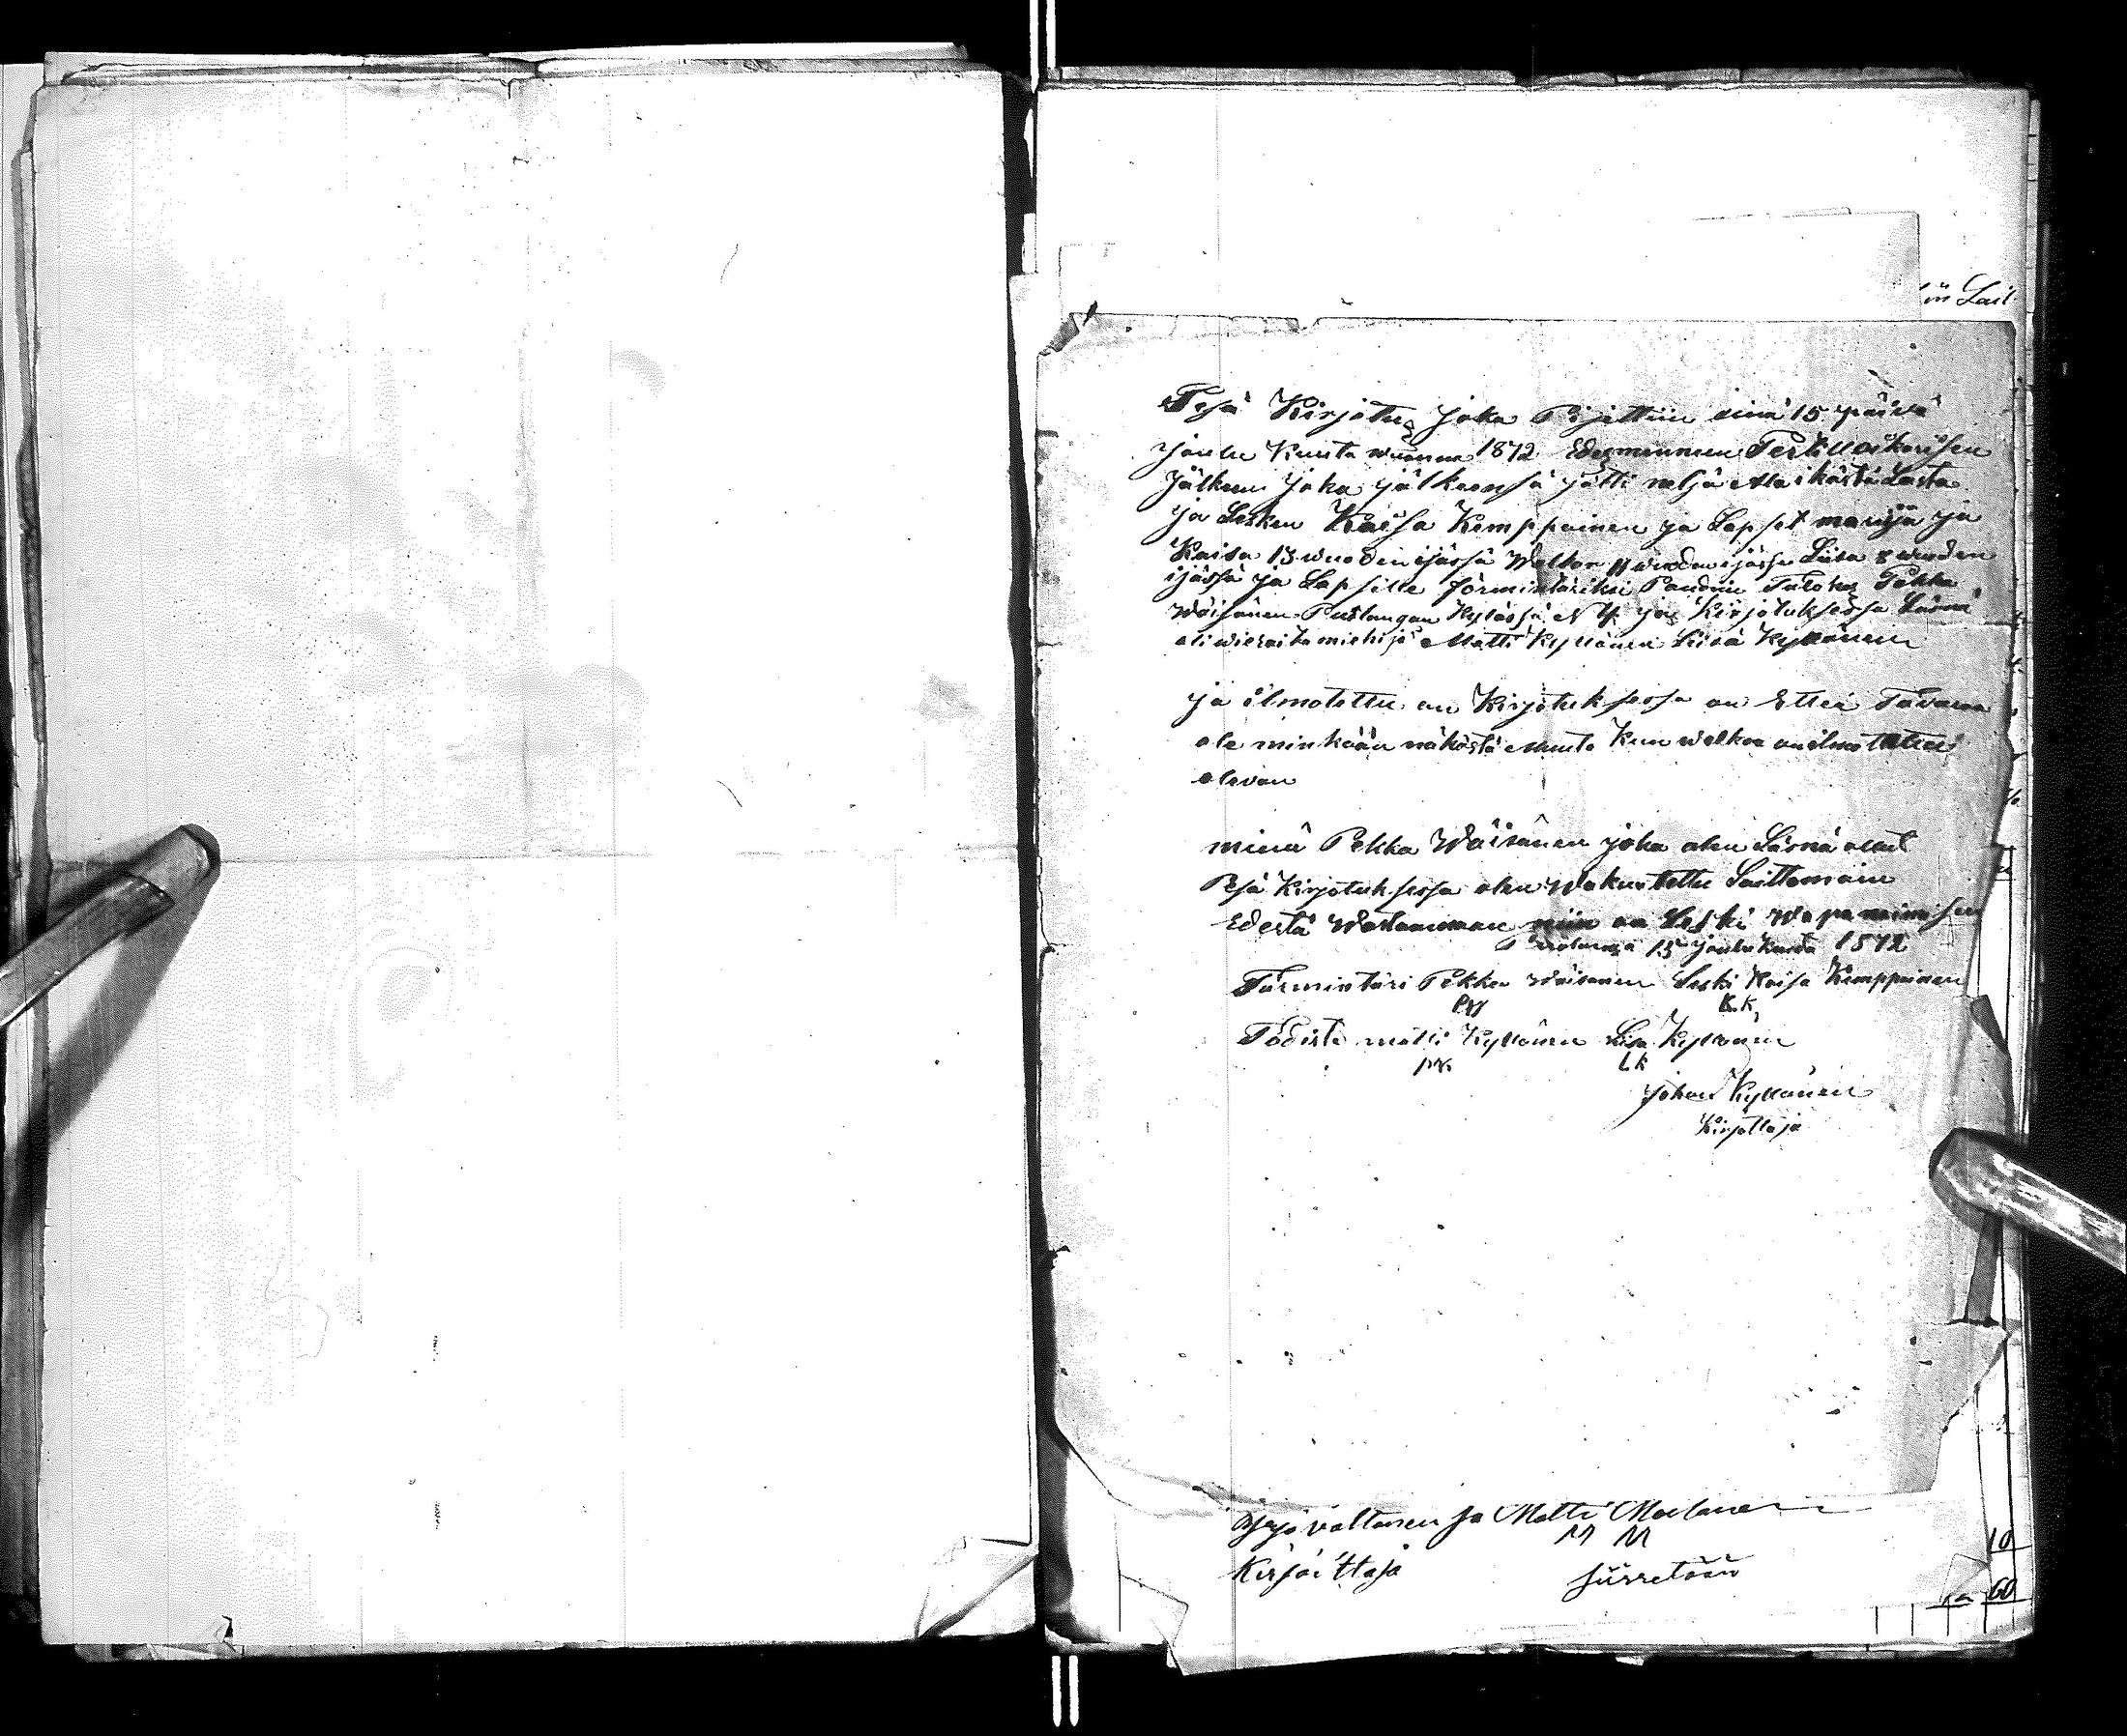 in Lail
Pesä Kirjotus joka Pijettiin sinä 15 päivä
joulu Kuuta wuonna 1872 Edesmennen Pertti Moikarisen
Jälkeen joka jälkeensä jätti neljä Ala ikästä Lasta
ja Lesken Kaisa Kemppainen ja Lapset marija ja
Kaisa 13 wuoden ijässä Walbor 11 wuoden ijässä Liisa 8 wuoden
ijässä ja Lapsille förmintäriksi Pandiin Talokas Pekka
Wäisänen Puolangan Kylässä N 4 ja Kirjotuksessa Läsnä
oli wieraita miehijä Matti Kyllönen Liisa Kyllönen
ja ilmotettu on Kirjotuksessa on Ettei Tavaraa
ole minkään näköstä Muuta Kun welkoa on ilmotettu
olevan
minä Pekka Wäisänen joka olen Läsnä ollut
Pesä Kirjotuksessa olen Wakuutettu Laittomain
Edestä Wastaamaan niin on Leski
Puolanga 15 Joulukuuta 1872
Förmintäri Pekka Wäisänen Leski Kaisa Kemppainen
PW K.K
Todista matti Kyllönen Lisa Kyllönen
MK LK
Johan Kyllönen
Kirjottaja
Yrjö valtanen ja Matti Moilanen
M M
Kirjoittaja siirretään
10
60